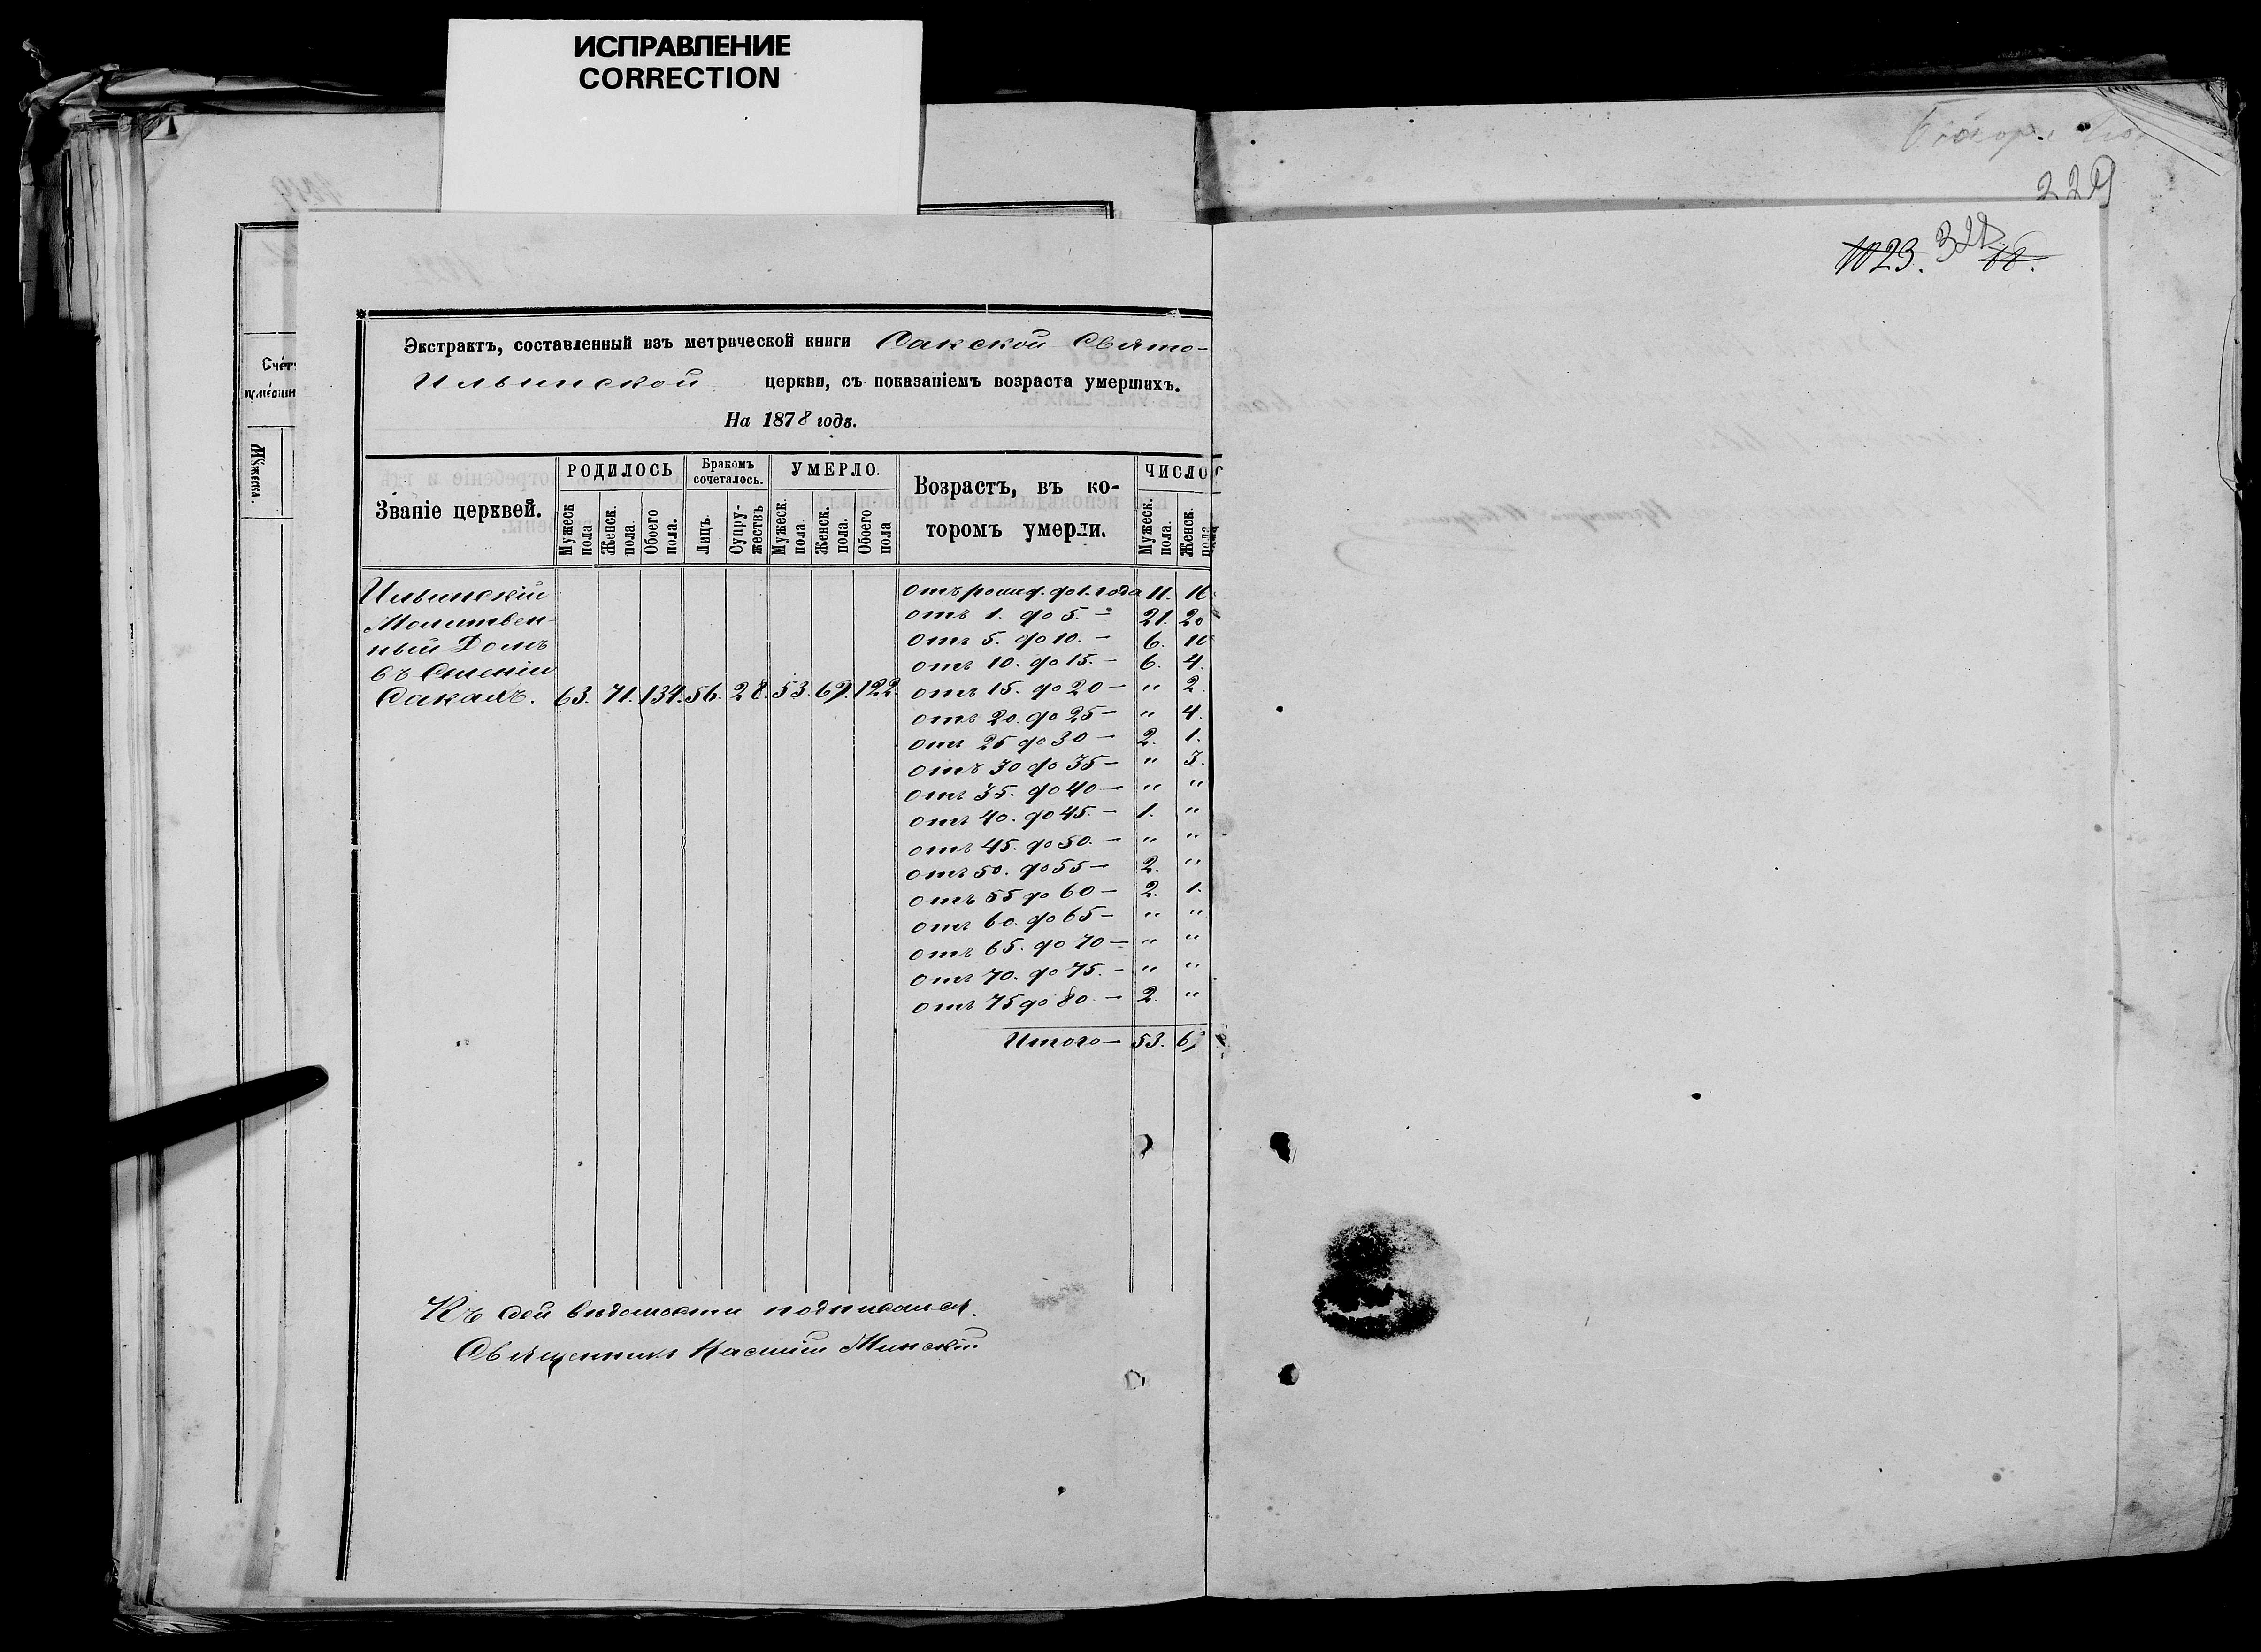 ИСПРАВЛЕНИЕ
CORRECTION
329
1023. 328 18.
Экстрактъ, составленный изъ метрической книги Сакской Свято-
Ильинской церкви, съ показаніемъ возраста умершихъ.
На 1878 годъ.
Званіе церквей.
РОДИЛОСЬ
Бракомъ сочеталось.
УМЕРЛО.
Возрастъ, въ ко-
торомъ умерли.
ЧИСЛО
Мужеск пола
Женск. пола.
Обоего пола.
Лицъ
Супру-жествъ
Мужеск. пола.
Женск. пола.
Обоего пола
Мужеск. пола.
Женск. пола
Ильинскій
Молитвен-
ный Домъ
въ Имѣніи
Сакахъ. 63. 71. 134. 56. 28. 53. 69. 122.
отъ рожд. до 1. года 11. 16.
отъ 1. до 5. – 21. 20
отъ 5. до 10. – 6. 10
отъ 10. до 15. – 6. 4.
отъ 15. до 20 – " 2.
отъ 20. до 25 – " 4.
отъ 25 до 30 – 2. 1.
отъ 30 до 35 – " 3.
отъ 35. до 40 – " "
отъ 40. до 45. – 1. "
отъ 45. до 50. – " "
отъ 50. до 55 – 2. "
отъ 55 до 60 – 2. 1.
отъ 60. до 65 – " "
отъ 65. до 70 – " "
отъ 70. до 75. – " "
отъ 75 до 80. – 2. "
Итого – 53. 6
Къ сей вѣдомости подписался.
Священникъ Минскій
Счетъ
умерши
Мужеска.